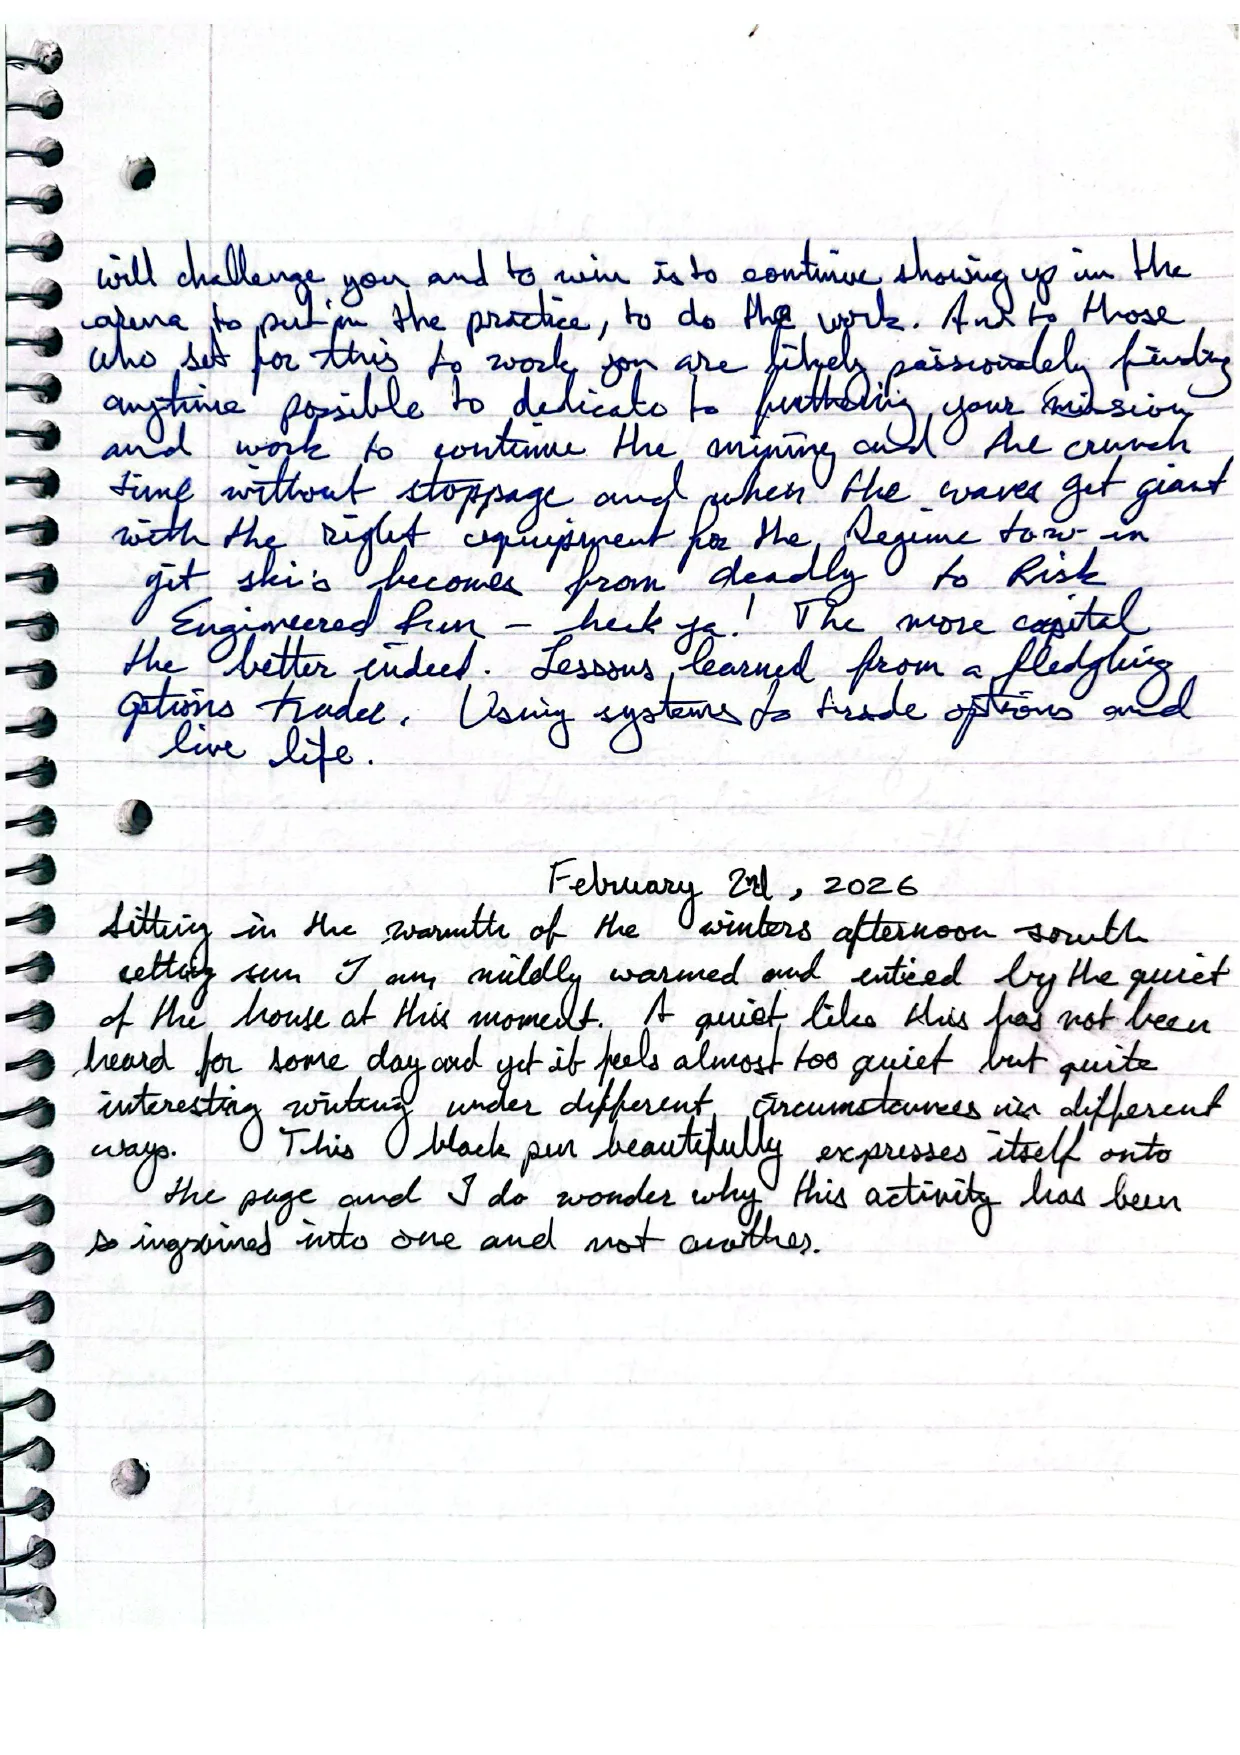 will challenge you and to win is to continue showing up in the
arena to put in the practice, to do the work. And to those
who set for this to work you are likely passionately finding
anytime possible to dedicate to furthering your mission
and work to continue the mining and the crunch
time without stoppage and when the waves get giant
with the right equipment for the Regime tow-in
jet ski's becomes from deadly to Risk
Engineered Fun - heck ya! The more capital
the better indeed. Lessons learned from a fledgling
options trader. Using systems to trade options and
live life.
February 2nd, 2026
Sitting in the warmth of the winters afternoon south
setting sun I am mildly warmed and enticed by the quiet
of the house at this moment. A quiet like this has not been
heard for some day and yet it feels almost too quiet but quite
interesting writing under different circumstances in different
ways. This black pen beautifully expresses itself onto
the page and I do wonder why this activity has been
so ingrained into one and not another.